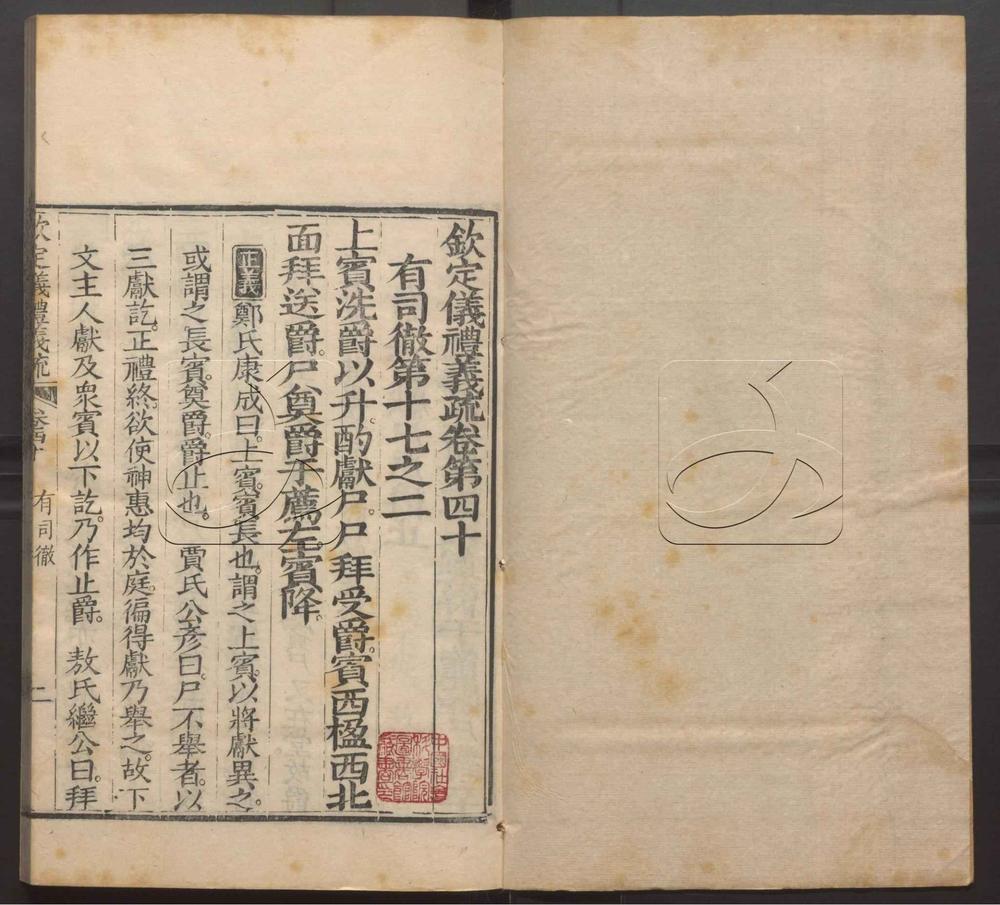 欽定儀禮義疏卷第四十
有司徹第十七之二
上賓洗爵以升酌獻尸。尸拜受爵。賓西楹西北
面拜送爵。尸奠爵于薦左。賓降。
正義 鄭氏康成曰。上賓。賓長也。謂之上賓。以將獻異之。
或謂之長賓。奠爵。爵止也。 賈氏公彥曰。尸不舉者。以
三獻訖。正禮終。欲使神惠均於庭。徧得獻乃舉之。故下
文主人獻及衆賓以下訖。乃作止爵。 敖氏繼公曰。拜
欽定儀禮義疏 卷四十 有司徹 一